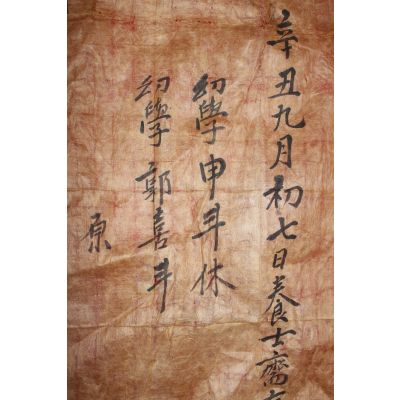 辛丑九月初七日養士齋
幼學申斗休
幼學郭喜斗
原